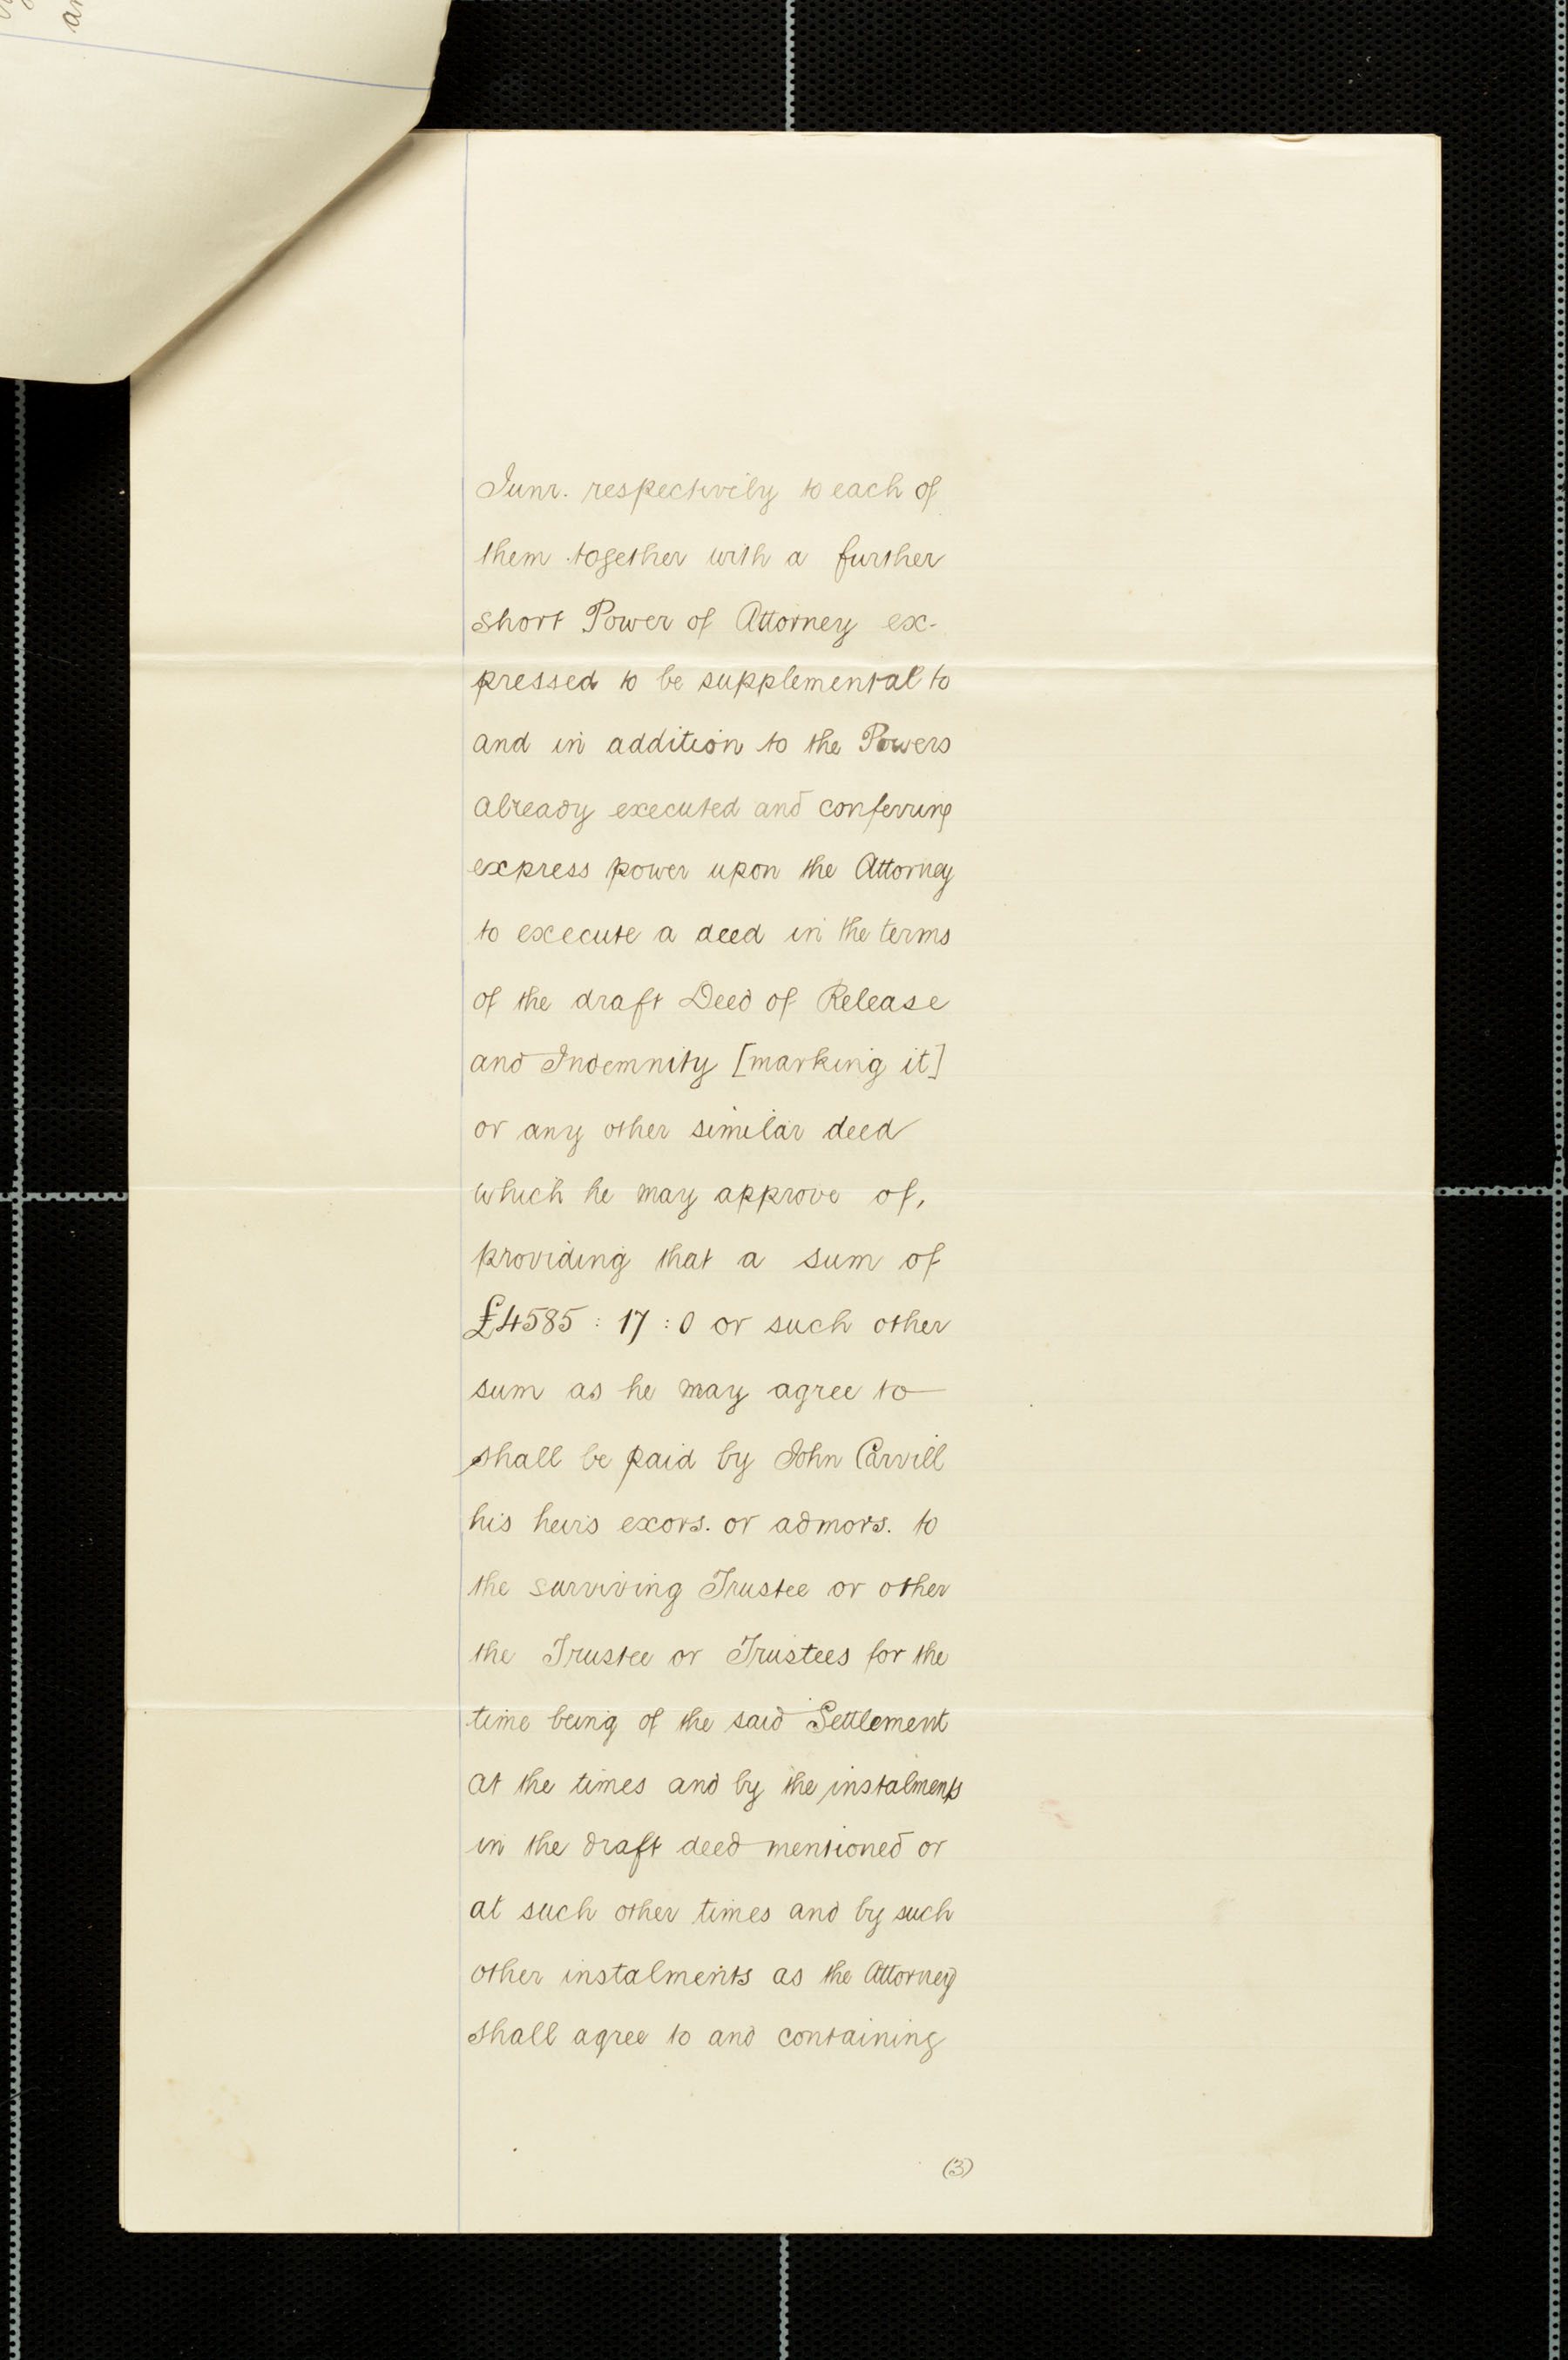 Junr. respectively to each of
them together with a further
short Power of Attorney ex-
pressed to be supplemental to
and in addition to the Powers
already executed and conferring
express power upon the Attorney
to execute a deed in the terms
of the draft Deed of Release
and Indemnity [marking it]
or any other similar deed
which he may approve of,
providing that a sum of
£4585 : 17 : 0 or such other
sum as he may agree to
shall be paid by John Carvill
his heirs exors. or admors. to
the surviving Trustee or other
the Trustee or Trustees for the
time being of the said Settlement
at the times and by the instalments
in the draft deed mentioned or
at such other times and by such
other instalments as the Attorney
shall agree to and containing
(3)